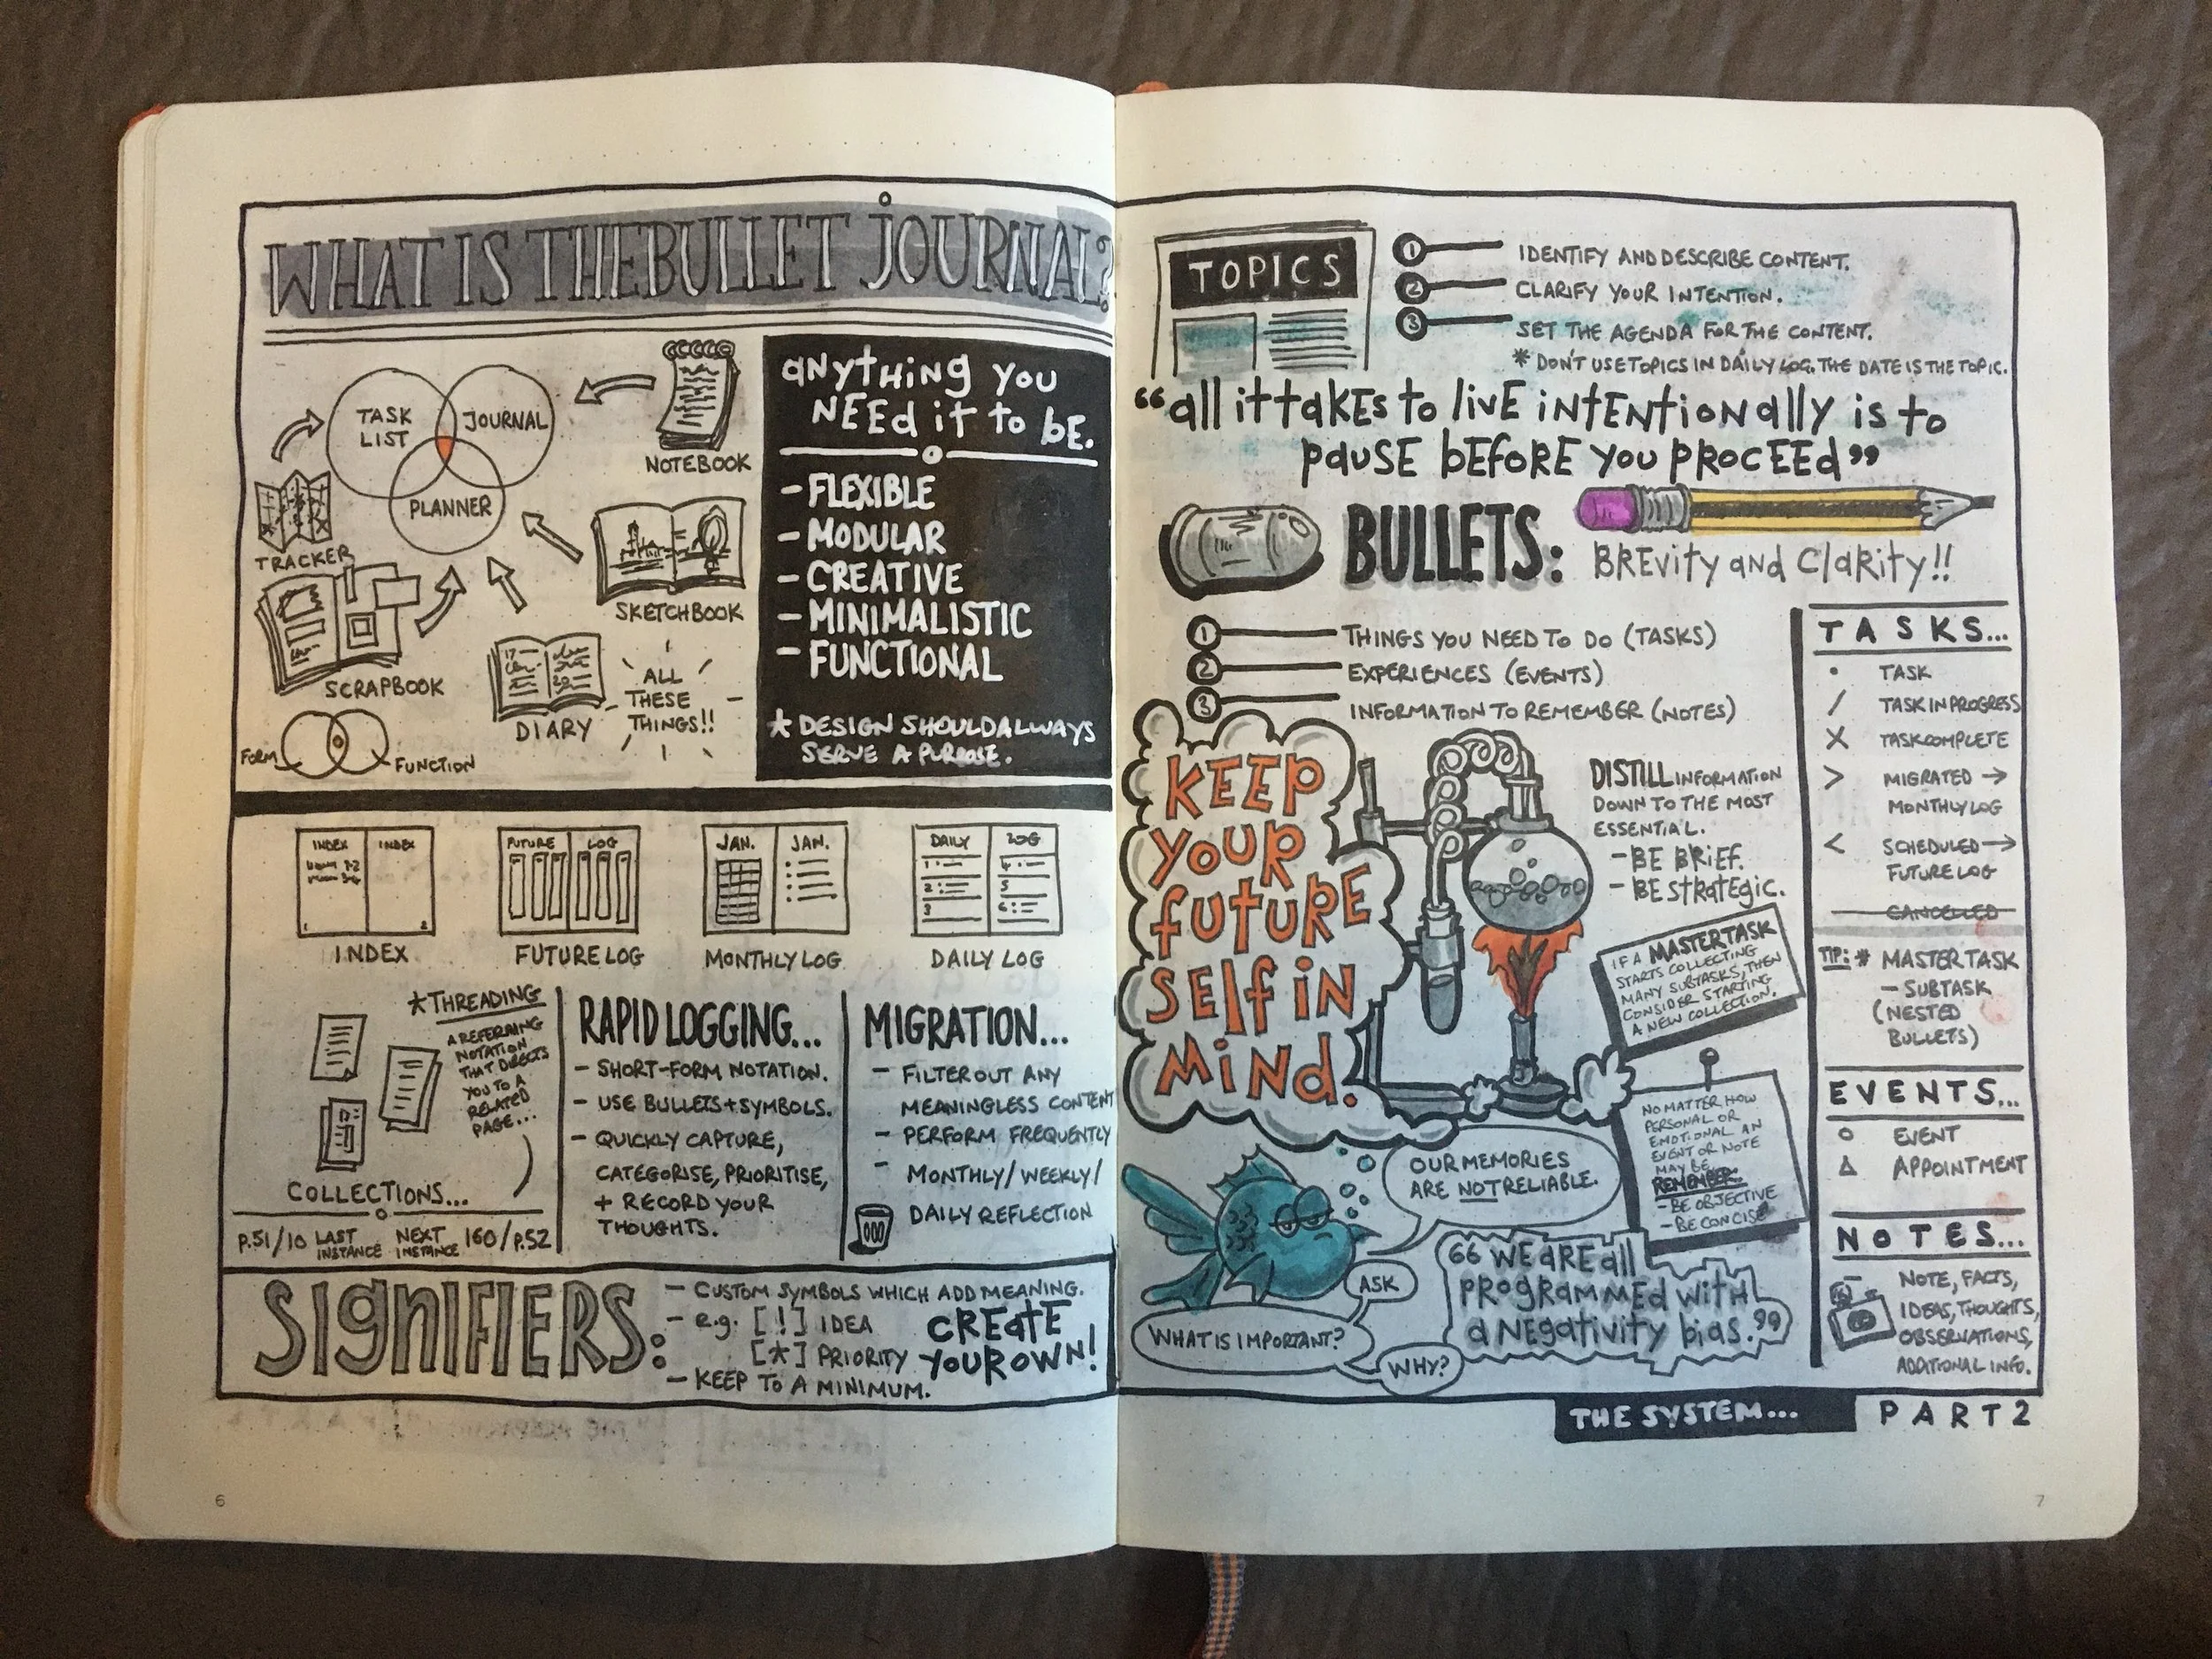 WHAT IS THE BULLET JOURNAL?
TASK
LIST
JOURNAL
PLANNER
NOTEBOOK
TRACKER
SKETCHBOOK
SCRAPBOOK
DIARY
ALL
THESE
THINGS!!
FORM
FUNCTION
ANYTHING YOU
NEED it to bE.
- FLEXIBLE
- MODULAR
- CREATIVE
- MINIMALISTIC
- FUNCTIONAL
* DESIGN SHOULD ALWAYS
SERVE A PURPOSE.
INDEX INDEX
1 2
INDEX
FUTURE LOG
FUTURE LOG
JAN. JAN.
MONTHLY LOG
DAILY LOG
DAILY LOG
* THREADING
A REFERRING
NOTATION
THAT DIRECTS
YOU TO A
RELATED
PAGE...
COLLECTIONS...
P.51/10 LAST INSTANCE NEXT INSTANCE 160/P.52
RAPID LOGGING...
- SHORT-FORM NOTATION.
- USE BULLETS + SYMBOLS.
- QUICKLY CAPTURE,
CATEGORISE, PRIORITISE,
+ RECORD YOUR
THOUGHTS.
MIGRATION...
- FILTER OUT ANY
MEANINGLESS CONTENT
- PERFORM FREQUENTLY
- MONTHLY/WEEKLY/
DAILY REFLECTION
SIGNIFIERS:
- CUSTOM SYMBOLS WHICH ADD MEANING.
- e.g. [!] IDEA
[*] PRIORITY
- KEEP TO A MINIMUM.
CREATE
YOUR OWN!
6
TOPICS
1 IDENTIFY AND DESCRIBE CONTENT.
2 CLARIFY YOUR INTENTION.
3 SET THE AGENDA FOR THE CONTENT.
* DON'T USE TOPICS IN DAILY LOG. THE DATE IS THE TOPIC.
“all it takes to live intentionally is to
pause before you proceed”
BULLETS: BREvity and Clarity!!
1 THINGS YOU NEED TO DO (TASKS)
2 EXPERIENCES (EVENTS)
3 INFORMATION TO REMEMBER (NOTES)
KEEP
YOUR
FUTURE
SELF IN
MIND.
DISTILL INFORMATION
DOWN TO THE MOST
ESSENTIAL.
- BE BRIEF.
- BE StRatEgic.
IF A MASTER TASK
STARTS COLLECTING
MANY SUBTASKS, THEN
CONSIDER STARTING
A NEW COLLECTION.
NO MATTER HOW
PERSONAL OR
EMOTIONAL AN
EVENT OR NOTE
MAY BE,
REMEMBER:
- BE OBJECTIVE
- BE CONCISE
OUR MEMORIES
ARE NOT RELIABLE.
ASK
WHAT IS IMPORTANT?
WHY?
“WE ARE all
PROGRAMMED with
a NEgativity bias.”
TASKS...
• TASK
/ TASK IN PROGRESS
X TASK COMPLETE
> MIGRATED →
MONTHLY LOG
< SCHEDULED →
FUTURE LOG
CANCELLED
TIP: * MASTER TASK
- SUBTASK
(NESTED
BULLETS)
EVENTS...
O EVENT
△ APPOINTMENT
NOTES...
- NOTE, FACTS,
IDEAS, THOUGHTS,
OBSERVATIONS,
ADDITIONAL INFO.
THE SYSTEM... PART 2
7